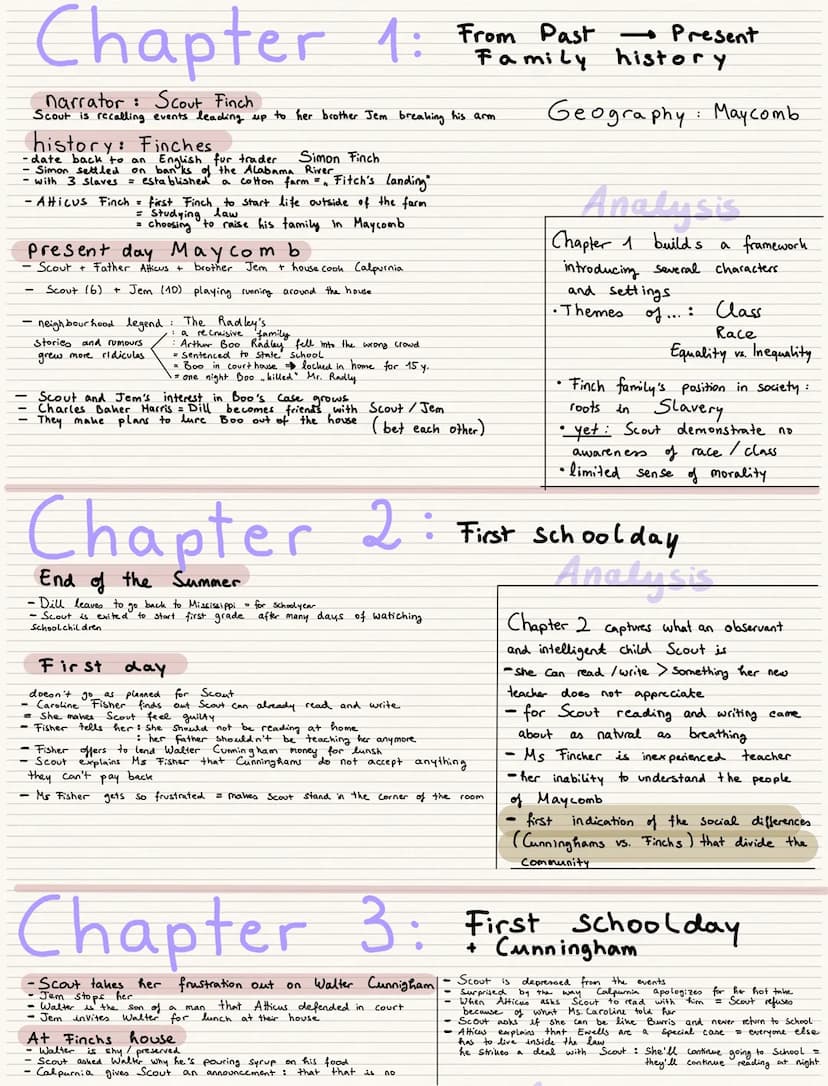 Chapter 1:
From Past → Present
Family history
narrator: Scout Finch
Scout is recalling events leading up to her brother Jem breaking his arm
Geography: Maycomb
history: Finches
- date back to an English fur trader Simon Finch
- Simon settled on banks of the Alabama River
- with 3 slaves = established a cotton farm = „Fitch's landing"
- Atticus Finch = first Finch to start life outside of the farm
= Studying law
= choosing to raise his family in Maycomb
present day Maycomb
- Scout + Father Atticus + brother Jem + housecook Calpurnia
- Scout (6) + Jem (10) playing running around the house
- neighbourhood legend: The Radley's
stories and rumours
grew more ridiculas
: a recruisive family
: Arthur Boo Radley fell into the wrong crowd
= sentenced to state school
= Boo in courthouse → locked in home for 15 y.
= one night Boo „killed" Mr. Radly
- Scout and Jem's interest in Boo's case grows
- Charles Baker Harris = Dill becomes friends with Scout / Jem
- They make plans to lure Boo out of the house
(bet each other)
Analysis
Chapter 1 builds a framework
introducing several characters
and settings
• Themes of...: Class
Race
Equality vs. Inequality
• Finch family's position in society:
roots in Slavery
• yet: Scout demonstrate no
awareness of race / class
• limited sense of morality
Chapter 2:
First schoolday
End of the Summer
- Dill leaves to go back to Missisippi = for schoolyear
- Scout is exited to start first grade after many days of watiching
schoolchildren
First day
doesn't go as planned for Scout
- Caroline Fisher finds out Scout can already read and write
= She makes Scout feel guilty
- Fisher tells her: she should not be reading at home
: her father shouldn't be teaching her anymore
- Fisher offers to lend Walter Cunningham money for lunsh
- Scout explains Ms Fisher that Cunninghams do not accept anything
they can't pay back
- Ms Fisher gets so frustrated = makes Scout stand in the corner of the room
Analysis
Chapter 2 captures what an observant
and intelligent child Scout is
- she can read / write > Something her new
teacher does not appreciate
- for Scout reading and writing came
about as natural as breathing
- Ms Fincher is inexperienced teacher
- her inability to understand the people
of Maycomb
- first indication of the social differences
(Cunninghams vs. Finchs) that divide the
community
Chapter 3:
First schoolday
+ Cunningham
- Scout takes her frustration out on Walter Cunnigham
- Jem stops her
- Walter is the son of a man that Atticus defended in court
- Jem invites Walter for lunch at their house
At Finchs house
- Walter is shy / preserved
- Scout asked Walter why he's pouring syrup on his food
- Calpurnia gives Scout an announcement: that that is no
- Scout is depressed from the events
- Surprised by the way Calpurnia apologizes for her
- When Atticus asks Scout to read with him = Scout refuses
because of what Ms. Caroline told her
- Scout asks if she can be like Burris and never return to School
- Atticus explains that Ewells are a special case = everyone else
has to live inside the law
he strikes a deal with Scout: She'll continue going to school =
they'll continue reading at night